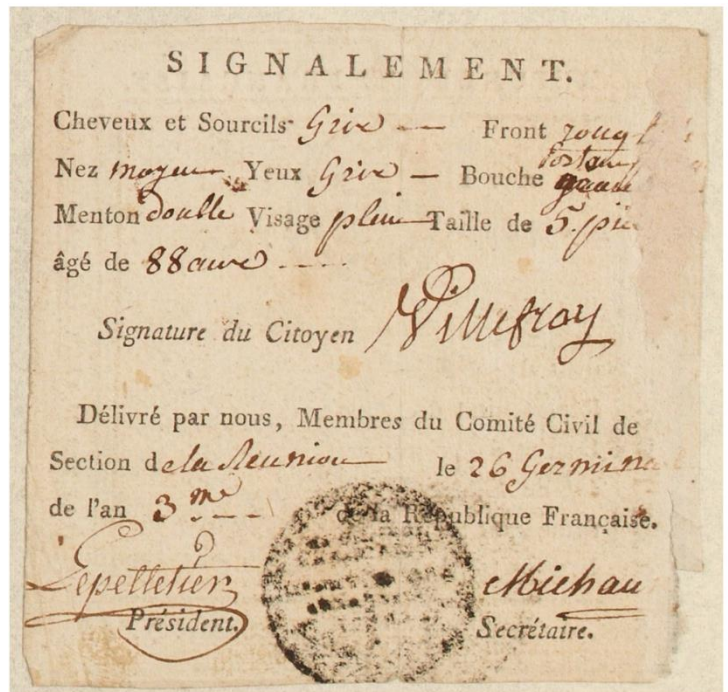 SIGNALEMENT.
Cheveux et Sourcils Gris Front
Nez moyen Yeux Gris Bouche
Menton double Visage plein Taille de 5. pie
âgé de 88 ans
Signature du Citoyen Villefroy
Délivré par nous, Membres du Comité Civil de
Section de la Reunion le 26 Germina
de l'an 3me de la République Française.
Lepelletier Michau
Président. Secrétaire.